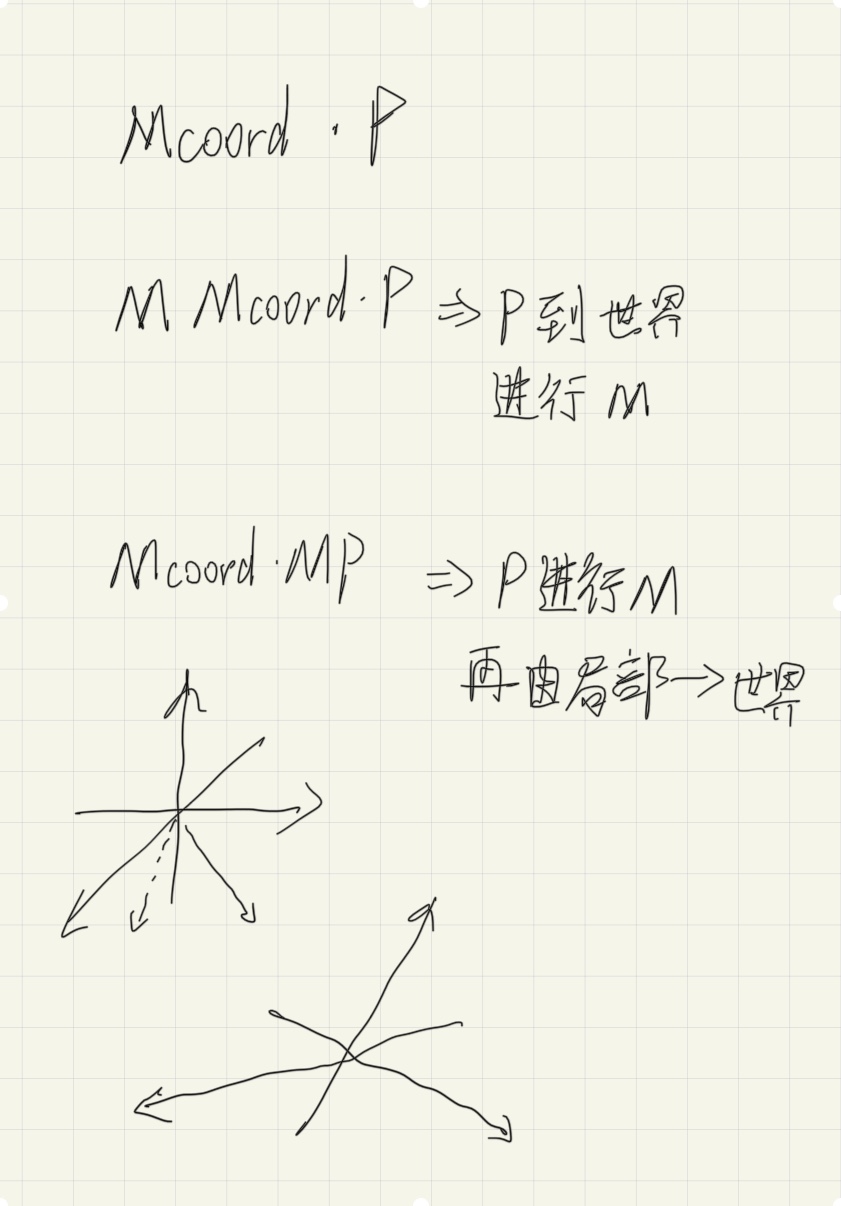 Mcoord · P
M Mcoord · P ⇒ P到世界
进行 M
Mcoord · MP ⇒ P进行M
再由局部→世界